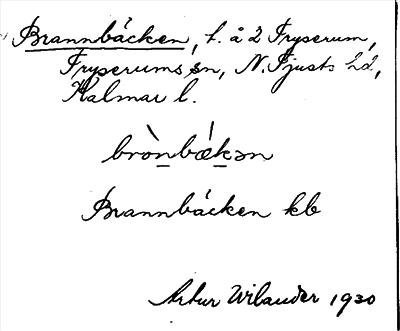 Brannbäcken, t. å 2 Fryserum,
Fryserums sn, N. Tjusts hd.,
Kalmar l.
brònbǽkən
Brannbäcken kb
Artur Wilander 1930